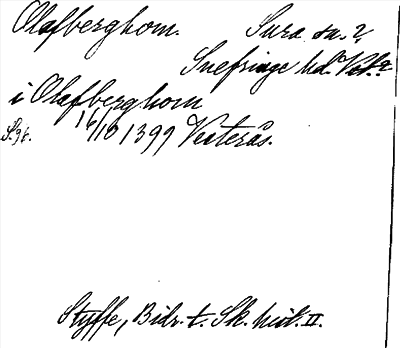 Olafberghom. Sura sn.?
Snefringe hd. Vstm.?
i Olafberghom
S. 98. 16/10 1399 Vesterås.
Styffe, Bidr. t. Sk. hist. II.